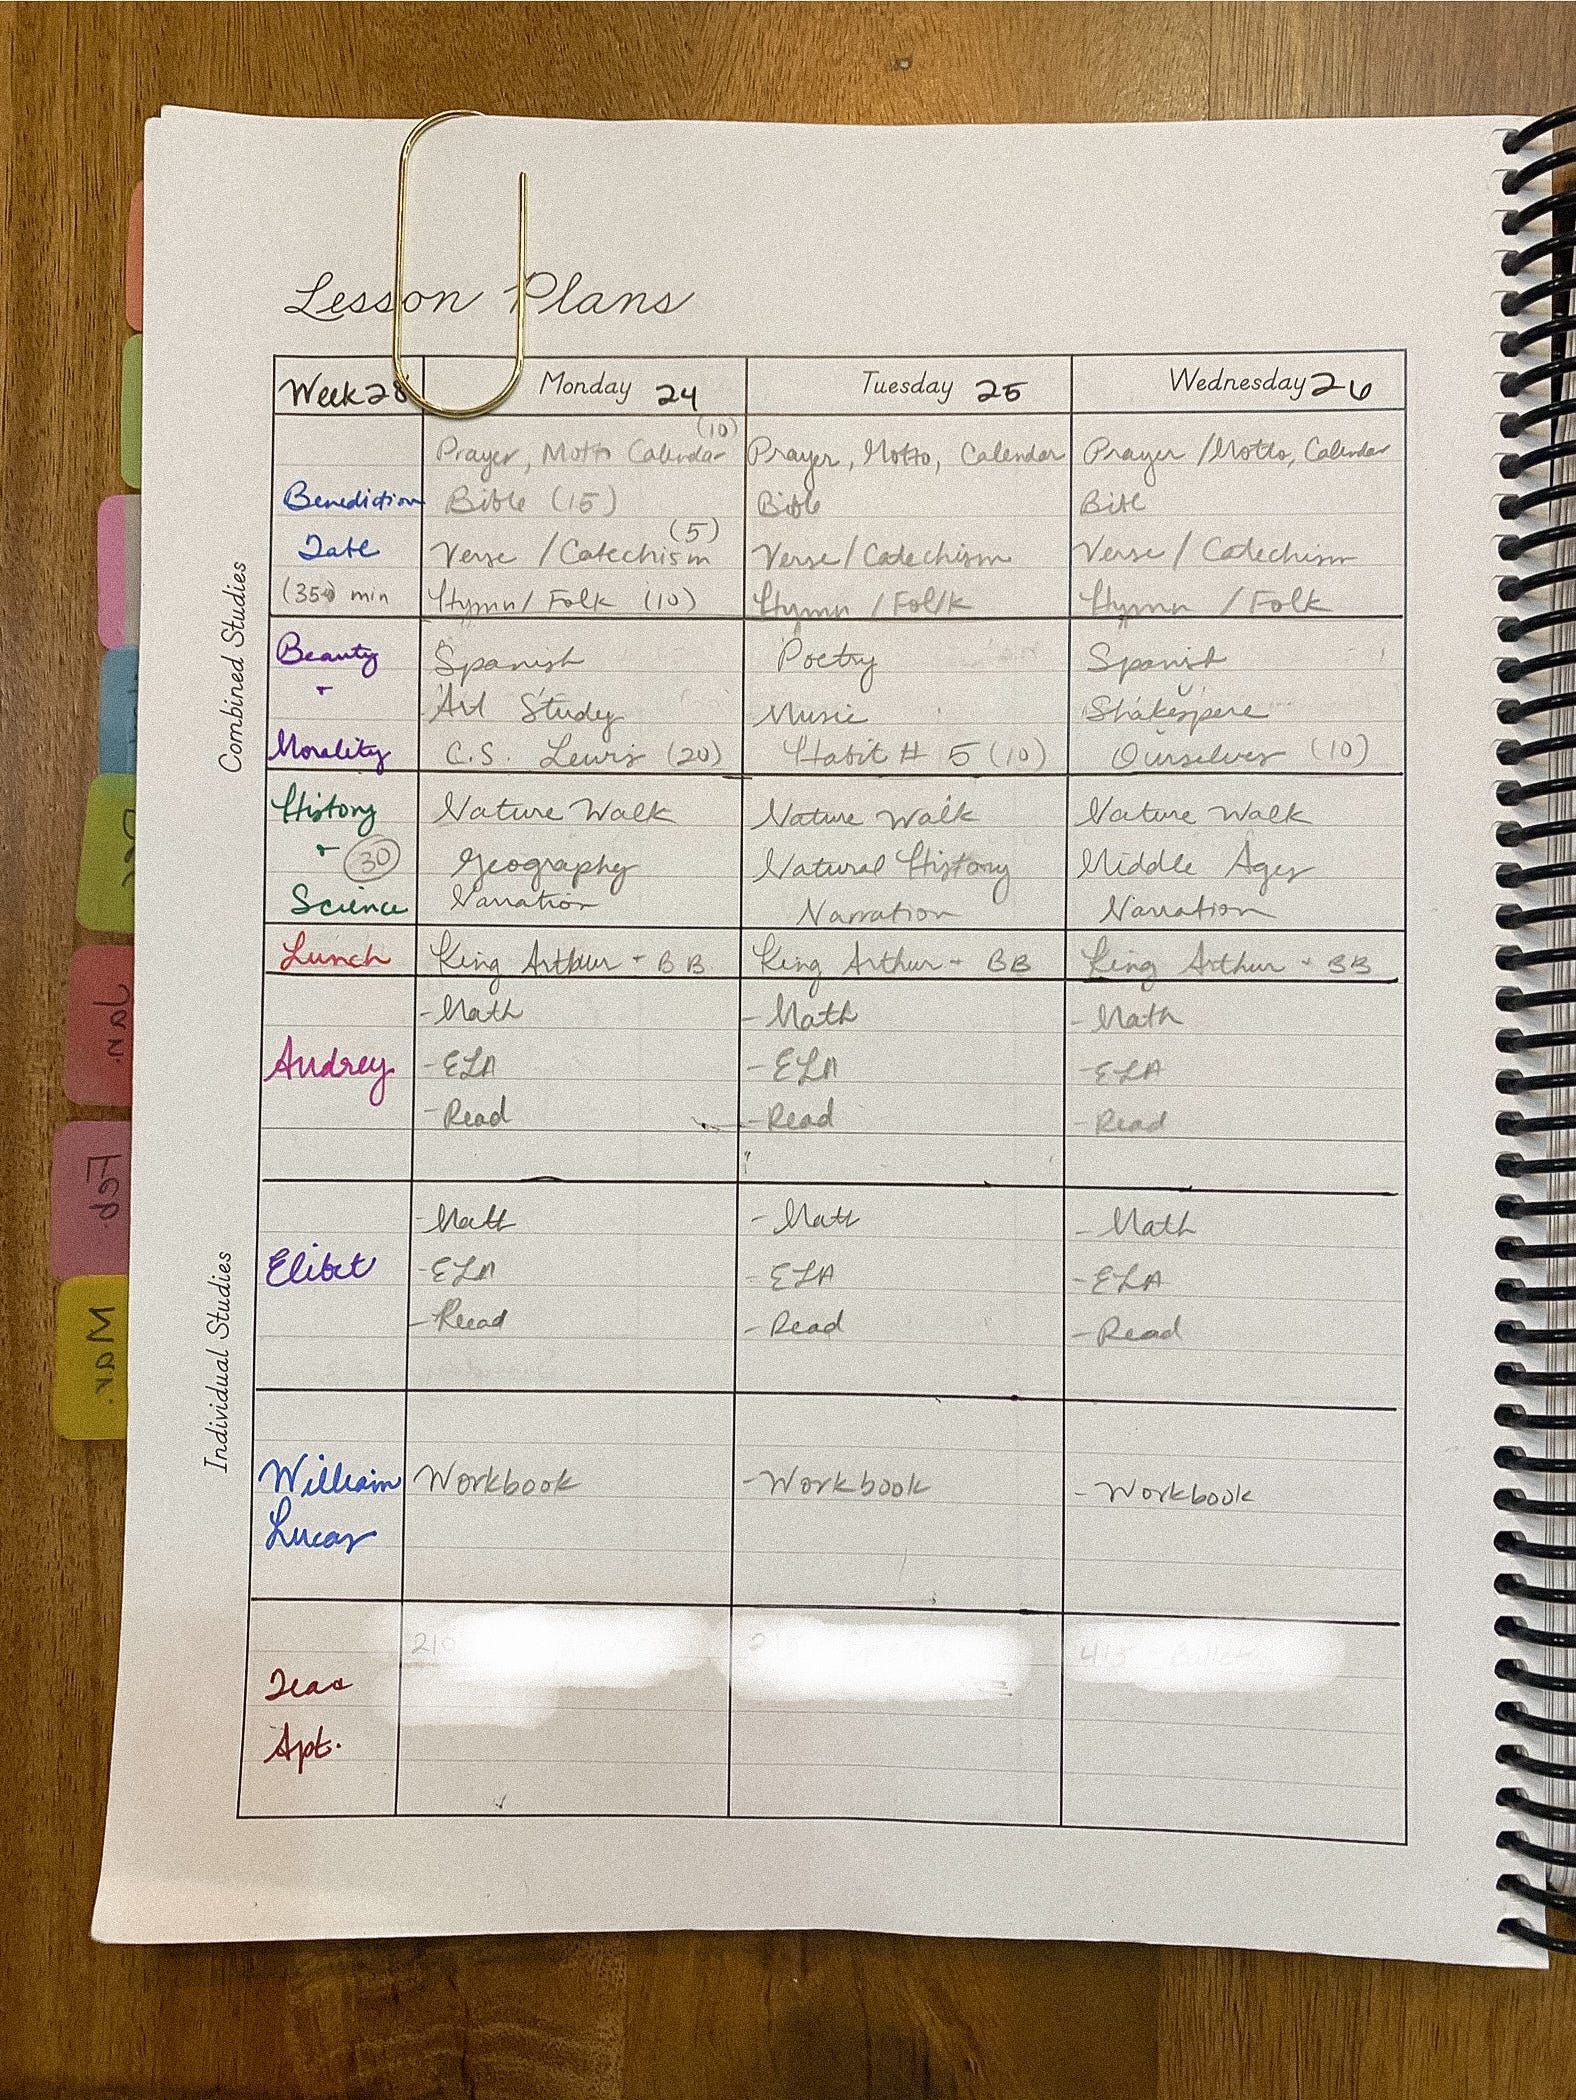 Lesson Plans
Week 28 Monday 24 Tuesday 25 Wednesday 26
Combined Studies
Benediction
(35 min
Prayer, Motto Calendar (10)
Bible (15)
Verse / Catechism (5)
Hymn / Folk (10)
Prayer, Motto, Calendar
Bible
Verse / Catechism
Hymn / Folk
Prayer / Motto, Calendar
Verse / Catechism
Hymn / Folk
Beauty
+
Morality
Spanish
Art Study
C.S. Lewis (20)
Poetry
Music
Habit # 5 (10)
Spanish
Shakespere
Ourselves (10)
History
+ 30
Science
Nature Walk
Geography
Narration
Nature Walk
Natural History
Narration
Nature Walk
Middle Ages
Narration
Lunch
King Arthur + BB
King Arthur + BB
King Arthur + BB
Individual Studies
Audrey
- Math
- ELA
- Read
- Math
- ELA
- Read
- Math
- ELA
- Read
Elibet
- Math
- ELA
- Read
- Math
- ELA
- Read
- Math
- ELA
- Read
William
Lucas
Workbook
- Workbook
- Workbook
Teas
Apt.
210
Ballet
Jan.
Feb.
Mar.